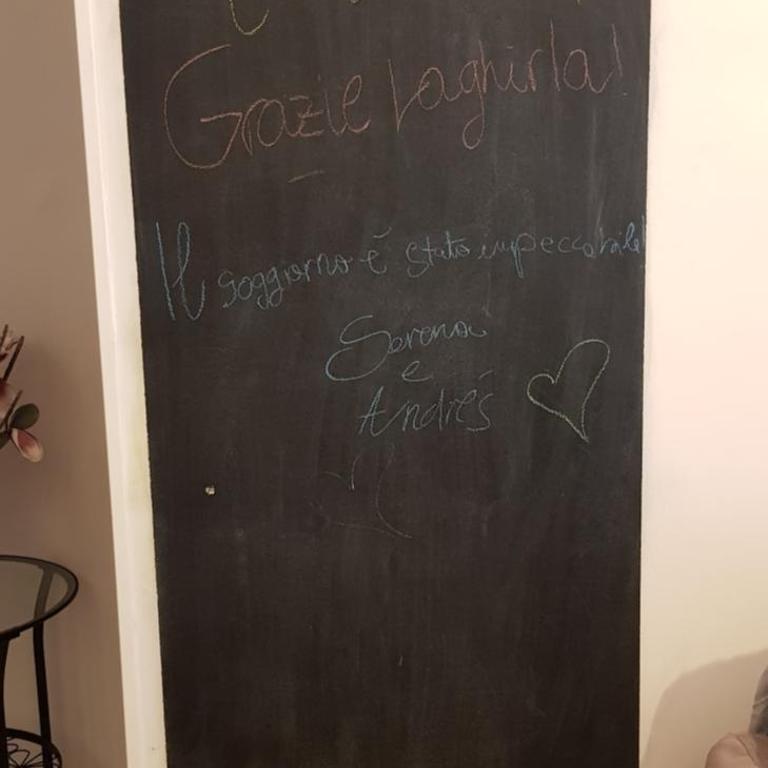 Grazie Laghirla!
Il soggiorno è stato impeccabile!
Serena
e
Andrés